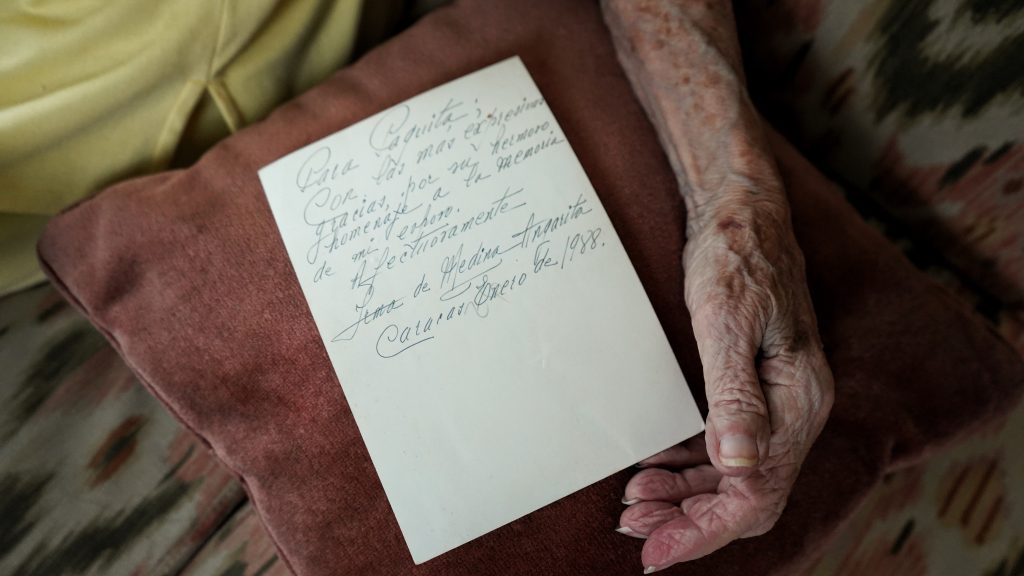 Para Paquita:
Con las más expresivas
gracias, por su hermoso
homenaje a la memoria
de mi esposo.
Afectuosamente
Irma de Medina Angarita
Caracas, Enero de 1988.